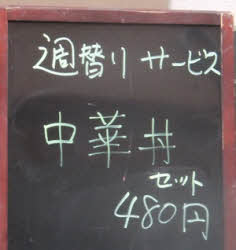 週替り サービス
中華丼
セット
480円